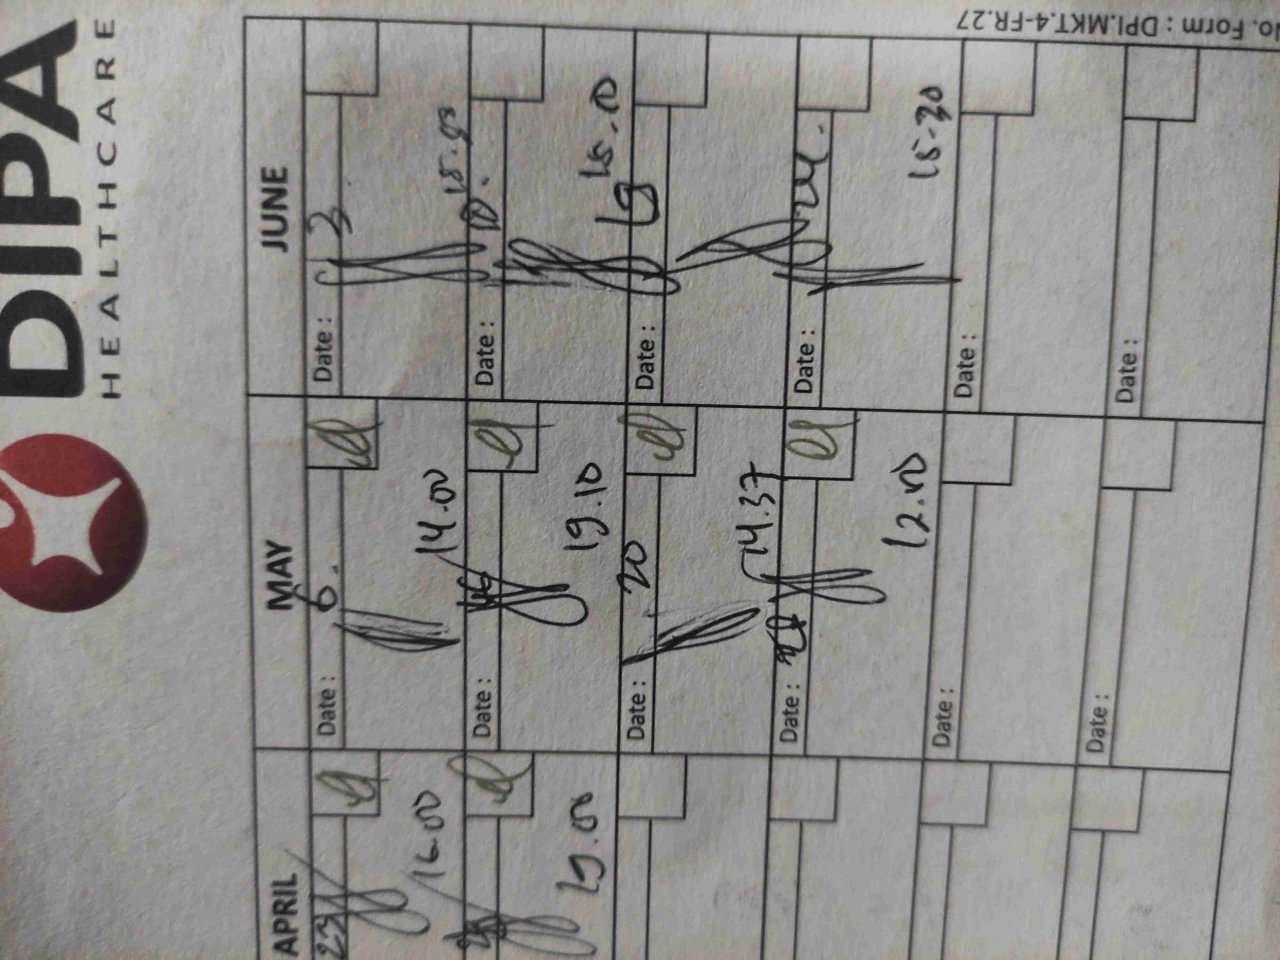 DIPA
HEALTHCARE
APRIL MAY JUNE
23 Date : 6. Date : 3
16.00 14.00 15.03
Date : Date : 10.
19.00 19.10 15.00
Date : 20 Date : 19
14.37
Date : Date : 24.
12.00 15-30
Date : Date :
Date : Date :
No. Form : DPI.MKT.4-FR.27